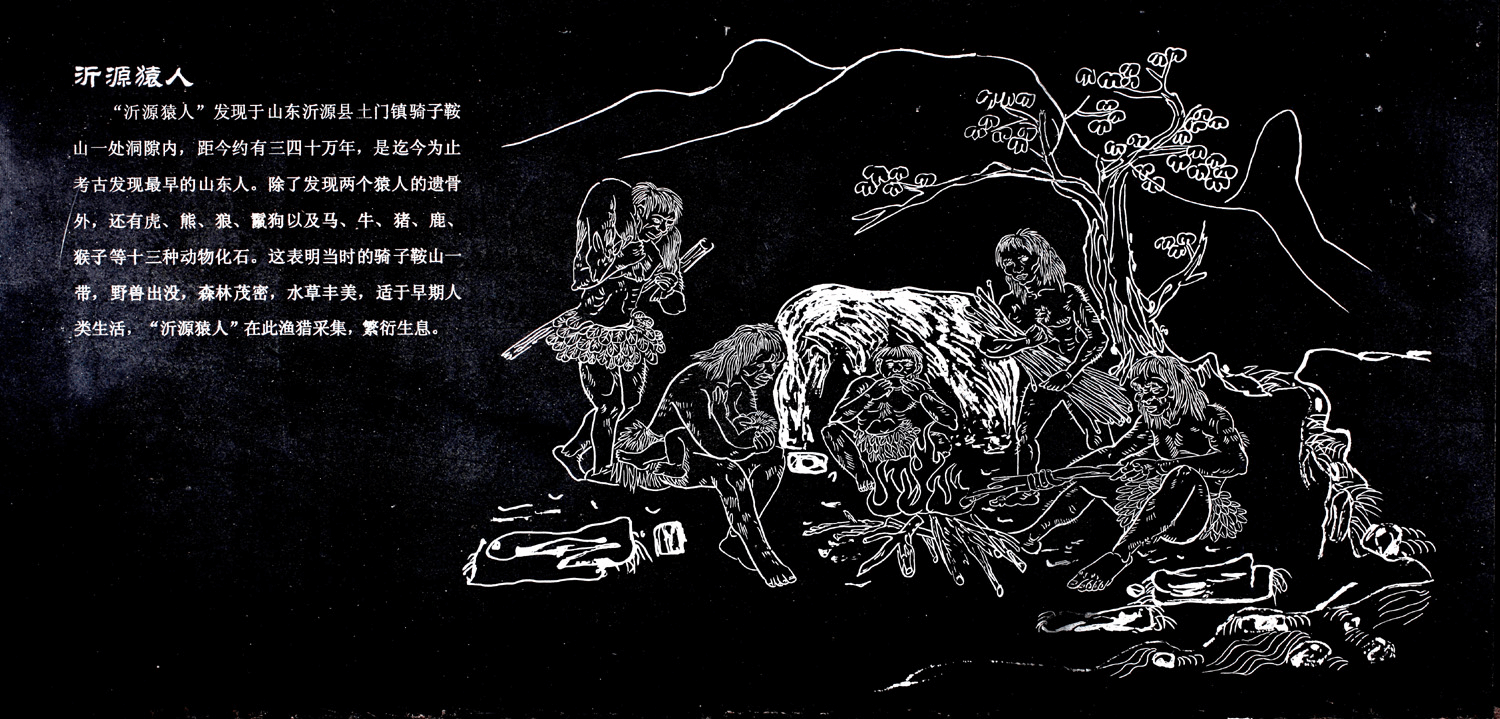 沂源猿人
“沂源猿人”发现于山东沂源县土门镇骑子鞍
山一处洞隙内，距今约有三四十万年，是迄今为止
考古发现最早的山东人。除了发现两个猿人的遗骨
外，还有虎、熊、狼、鬣狗以及马、牛、猪、鹿、
猴子等十三种动物化石。这表明当时的骑子鞍山一
带，野兽出没，森林茂密，水草丰美，适于早期人
类生活，“沂源猿人”在此渔猎采集，繁衍生息。